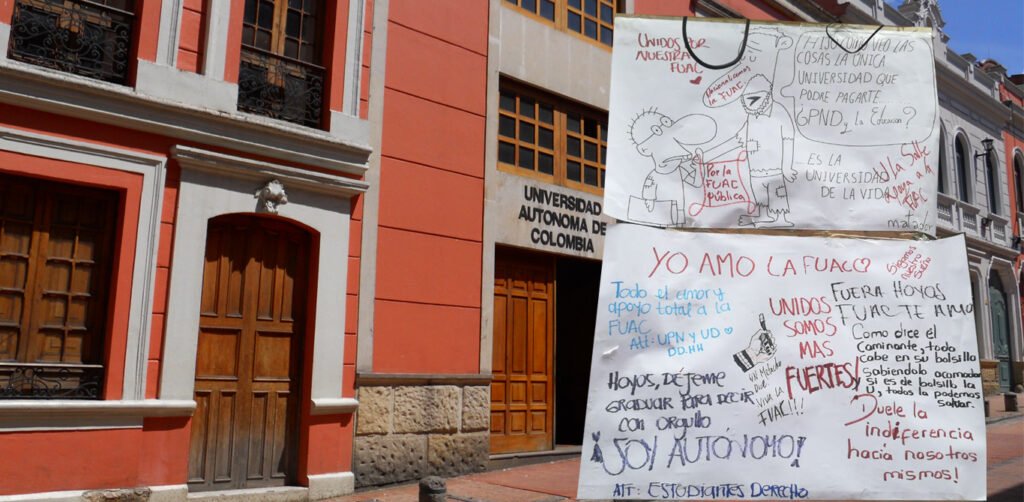 UNIVERSIDAD
AUTONOMA DE
COLOMBIA
UNIDOS POR
NUESTRA
FUAC
¡HIJO! UNO VEO LAS
COSAS LA ÚNICA
UNIVERSIDAD QUE
PODRE PAGARTE...
GPND y la Educación?
la FUAC
Por la
FUAC
Pública
ES LA
UNIVERSIDAD
DE LA VIDA
matador
YO AMO LA FUAC
Sigamos
nuestro
Sueño
Todo el amor y
apoyo total a la
FUAC
Att: UPN y UD
DD.HH
UNIDOS
SOMOS
MAS
FUERTES!
FUERA HOYOS
FUAC TE AMO
Como dice el
Caminante, todo
cabe en su bolsillo
sabiendolo acomodar
Si es de bolsillo la
U, todos la podemos
salvar.
que
Viva la
FUAC!!!
HOYOS, DÉJEME
GRADUAR PARA DECIR
CON ORGULLO
¡SOY AUTÓNOMO!
ATT: ESTUDIANTES DERECHO
Duele la
indiferencia
hacia nosotros
mismos!